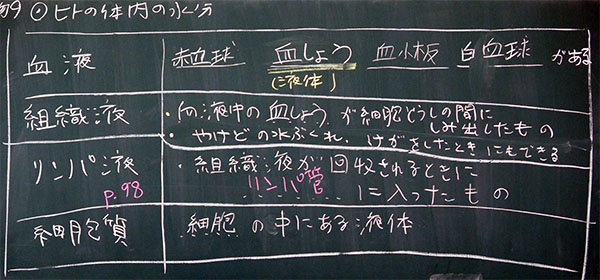 ⊙ ヒトの体内の水分
血液
赤血球 血しょう 血小板 白血球 がある
(液体)
組織液
・血液中の血しょうが細胞どうしの間に
しみ出したもの
・やけどの水ぶくれ、けがをしたときにもできる
リンパ液
P.98
・組織液が回収されるときに
リンパ管に入ったもの
細胞質
細胞の中にある液体